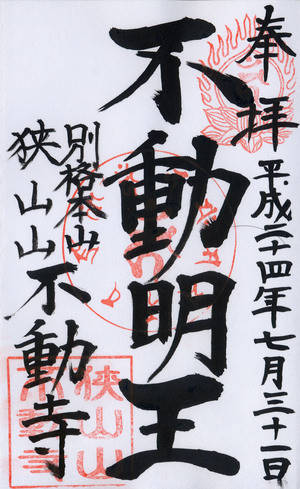 奉拝
平成二十四年七月三十一日
不動明王
別格本山
狭山山
不動寺
狭山山
不動寺